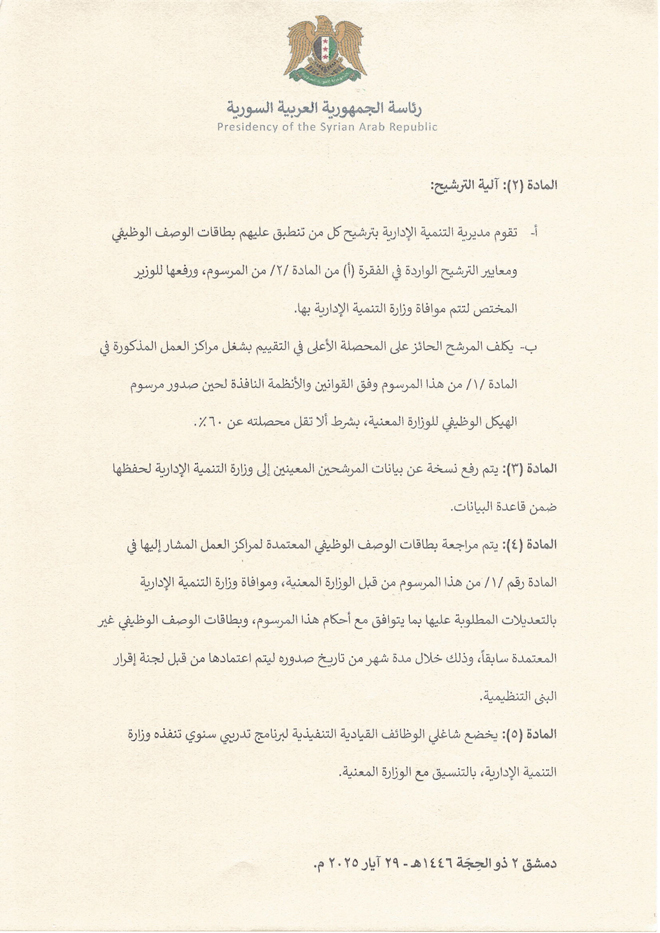 رئاسة الجمهورية العربية السورية
Presidency of the Syrian Arab Republic
المادة (٢): آلية الترشيح:
أ- تقوم مديرية التنمية الإدارية بترشيح كل من تنطبق عليهم بطاقات الوصف الوظيفي
ومعايير الترشيح الواردة في الفقرة (أ) من المادة /٢/ من المرسوم، ورفعها للوزير
المختص لتتم موافاة وزارة التنمية الإدارية بها.
ب- يكلف المرشح الحائز على المحصلة الأعلى في التقييم بشغل مراكز العمل المذكورة في
المادة /١/ من هذا المرسوم وفق القوانين والأنظمة النافذة لحين صدور مرسوم
الهيكل الوظيفي للوزارة المعنية، بشرط ألا تقل محصلته عن ٦٠٪.
المادة (٣): يتم رفع نسخة عن بيانات المرشحين المعينين إلى وزارة التنمية الإدارية لحفظها
ضمن قاعدة البيانات.
المادة (٤): يتم مراجعة بطاقات الوصف الوظيفي المعتمدة لمراكز العمل المشار إليها في
المادة رقم /١/ من هذا المرسوم من قبل الوزارة المعنية، وموافاة وزارة التنمية الإدارية
بالتعديلات المطلوبة عليها بما يتوافق مع أحكام هذا المرسوم، وبطاقات الوصف الوظيفي غير
المعتمدة سابقاً، وذلك خلال مدة شهر من تاريخ صدوره ليتم اعتمادها من قبل لجنة إقرار
البنى التنظيمية.
المادة (٥): يخضع شاغلي الوظائف القيادية التنفيذية لبرنامج تدريبي سنوي تنفذه وزارة
التنمية الإدارية، بالتنسيق مع الوزارة المعنية.
دمشق ٢ ذو الحِجَة ١٤٤٦هـ - ٢٩ آيار ٢٠٢٥ م.